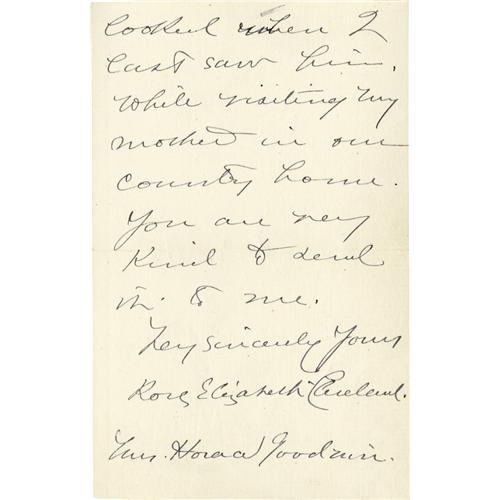 looked when I
last saw him,
while visiting my
mother in our
country home.
You are very
kind to send
it to me.
Very sincerely Yours
Rose Elizabeth Cleveland.
Mrs. Horace Goodwin.